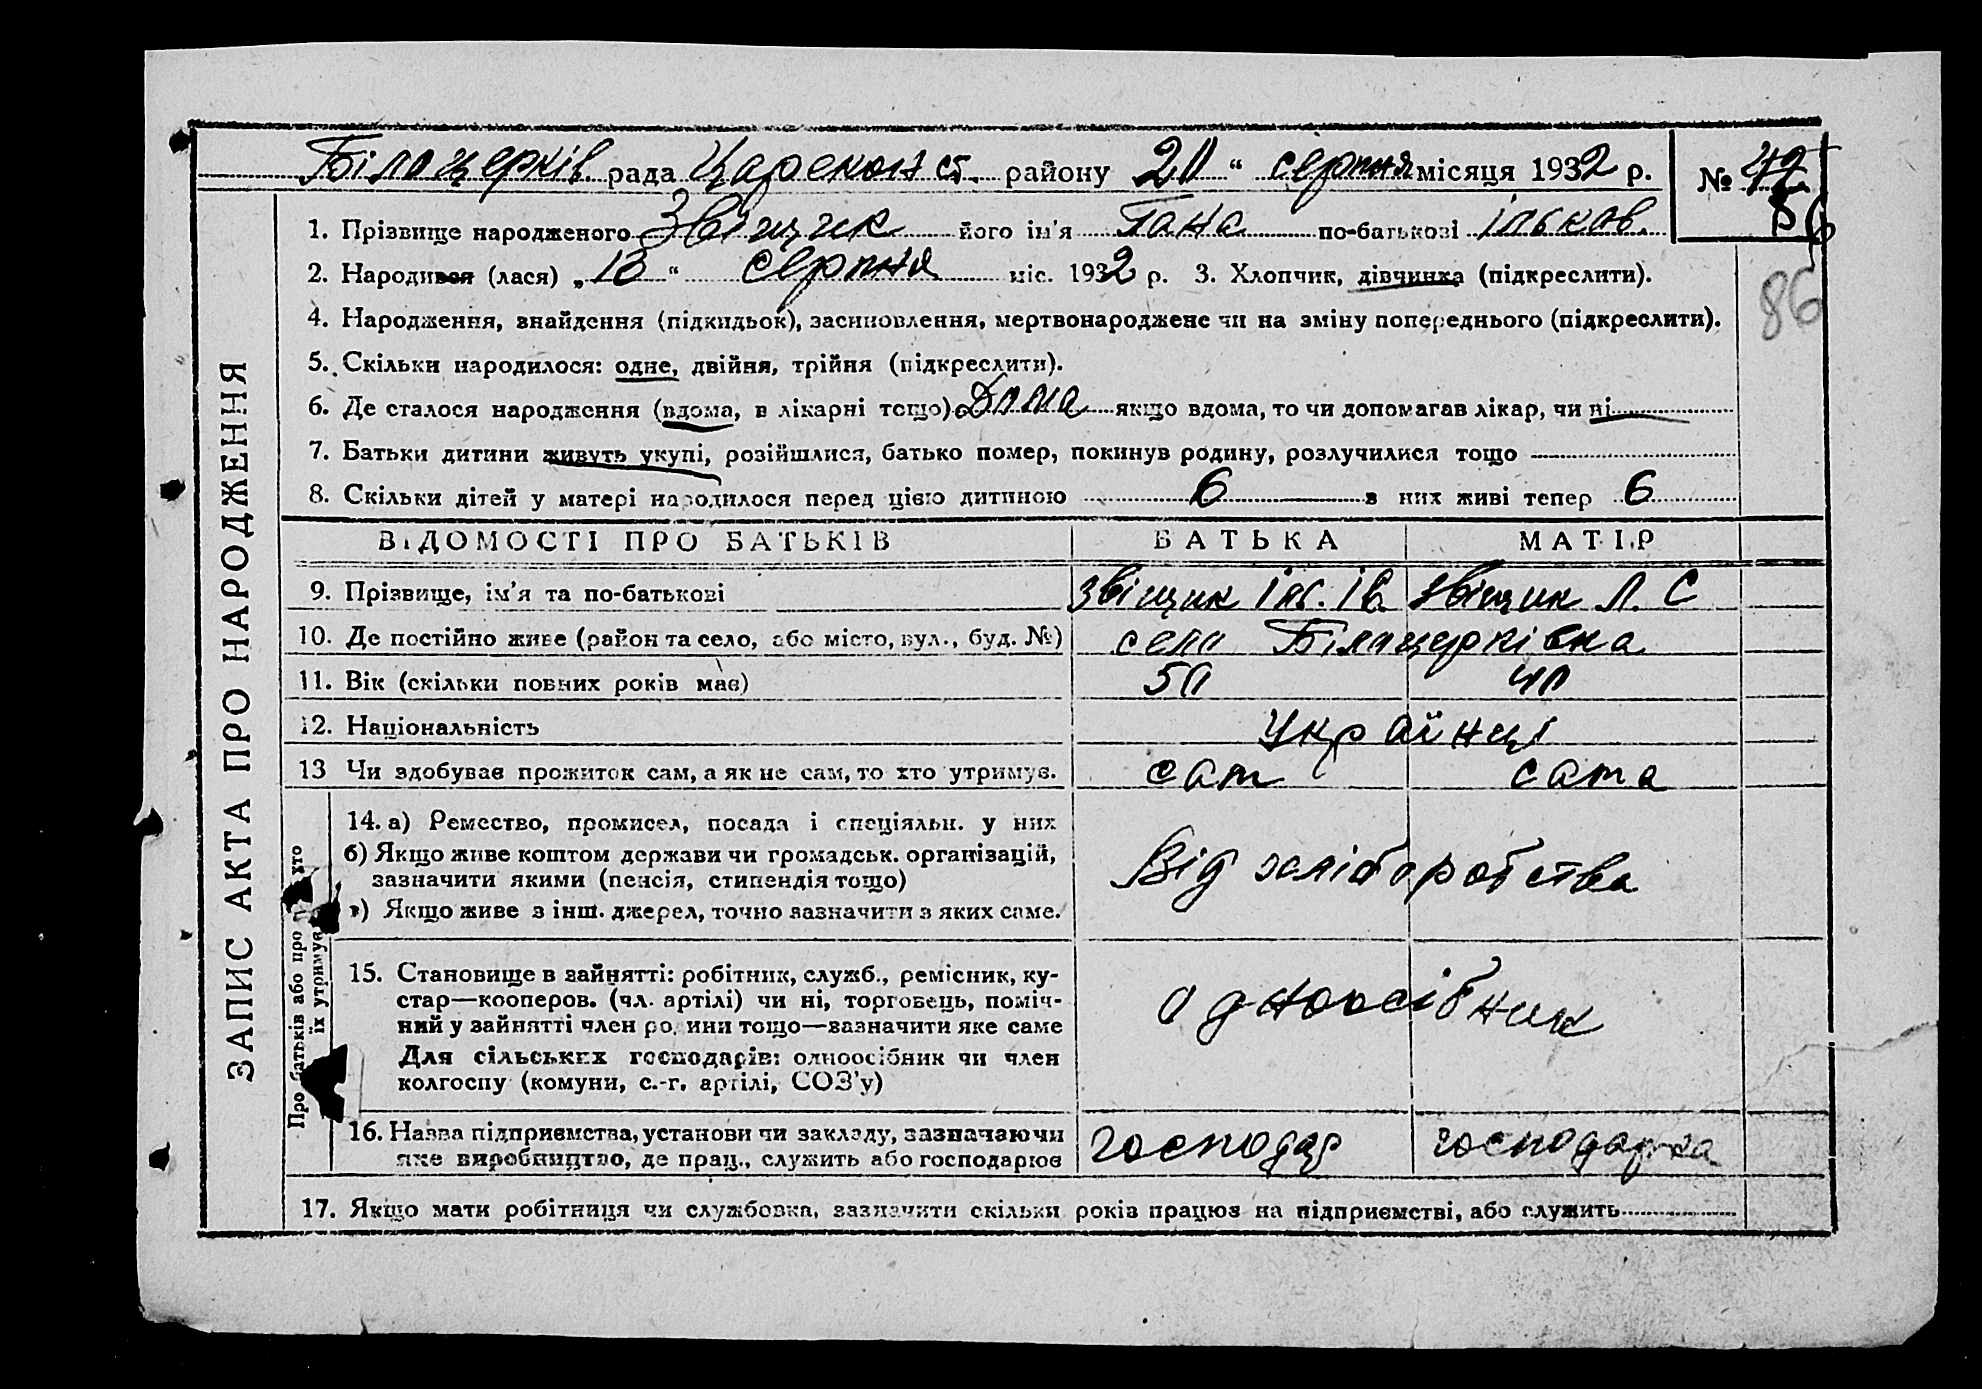 Білоцерків. рада Цареконст. району 20 " серпня місяця 1932 р. №
86
1. Прізвище народженого Звіщик його ім'я Гана по-батькові Ільков.
2. Народився (лася) „ 13 " серпня міс. 1932 р. 3. Хлопчик, дівчинка (підкреслити).
86
4. Народження, знайдення (підкидьок), засиновлення, мертвонароджене чи на зміну попереднього (підкреслити).
5. Скільки народилося: одне, двійня, трійня (підкреслити).
6. Де сталося народження (вдома, в лікарні тощо) Дома якщо вдома, то чи допомагав лікар, чи ні
7. Батьки дитини живуть укупі, розійшлися, батько помер, покинув родину, розлучилися тощо
8. Скільки дітей у матері народилося перед цією дитиною 6 в них живі тепер 6
ВІДОМОСТІ ПРО БАТЬКІВ БАТЬКА МАТІР
9. Прізвище, ім'я та по-батькові Звіщик Іл. Ів. Звіщик Л. С
10. Де постійно живе (район та село, або місто, вул., буд. №) село Білоцерківка
11. Вік (скільки повних років має) 50 40
12. Національність Українці
13 Чи здобував прожиток сам, а як не сам, то хто утримує. сам сама
14. а) Ремество, промисел, посада і спеціяльн. у них
б) Якщо живе коштом держави чи громадськ. організацій,
зазначити якими (пенсія, стипендія тощо)
в) Якщо живе з інш. джерел, точно зазначити з яких саме.
Від хліборобства
15. Становище в зайнятті: робітник, служб., ремісник, ку-
стар—кооперов. (чл. артілі) чи ні, торговець, поміч-
ний у зайнятті член родини тощо—зазначити яке саме
Для сільських господарів: одноосібник чи член
колгоспу (комуни, с.-г. артілі, СОЗ'у)
одноосібник
16. Назва підприємства, установи чи закладу, зазначаючи
яке виробництво, де прац., служить або господарює
господар господарка
17. Якщо мати робітниця чи службовка, зазначити скільки років працює на підприємстві, або служить
ЗАПИС АКТА ПРО НАРОДЖЕННЯ
Про батьків або про хто
їх утримує